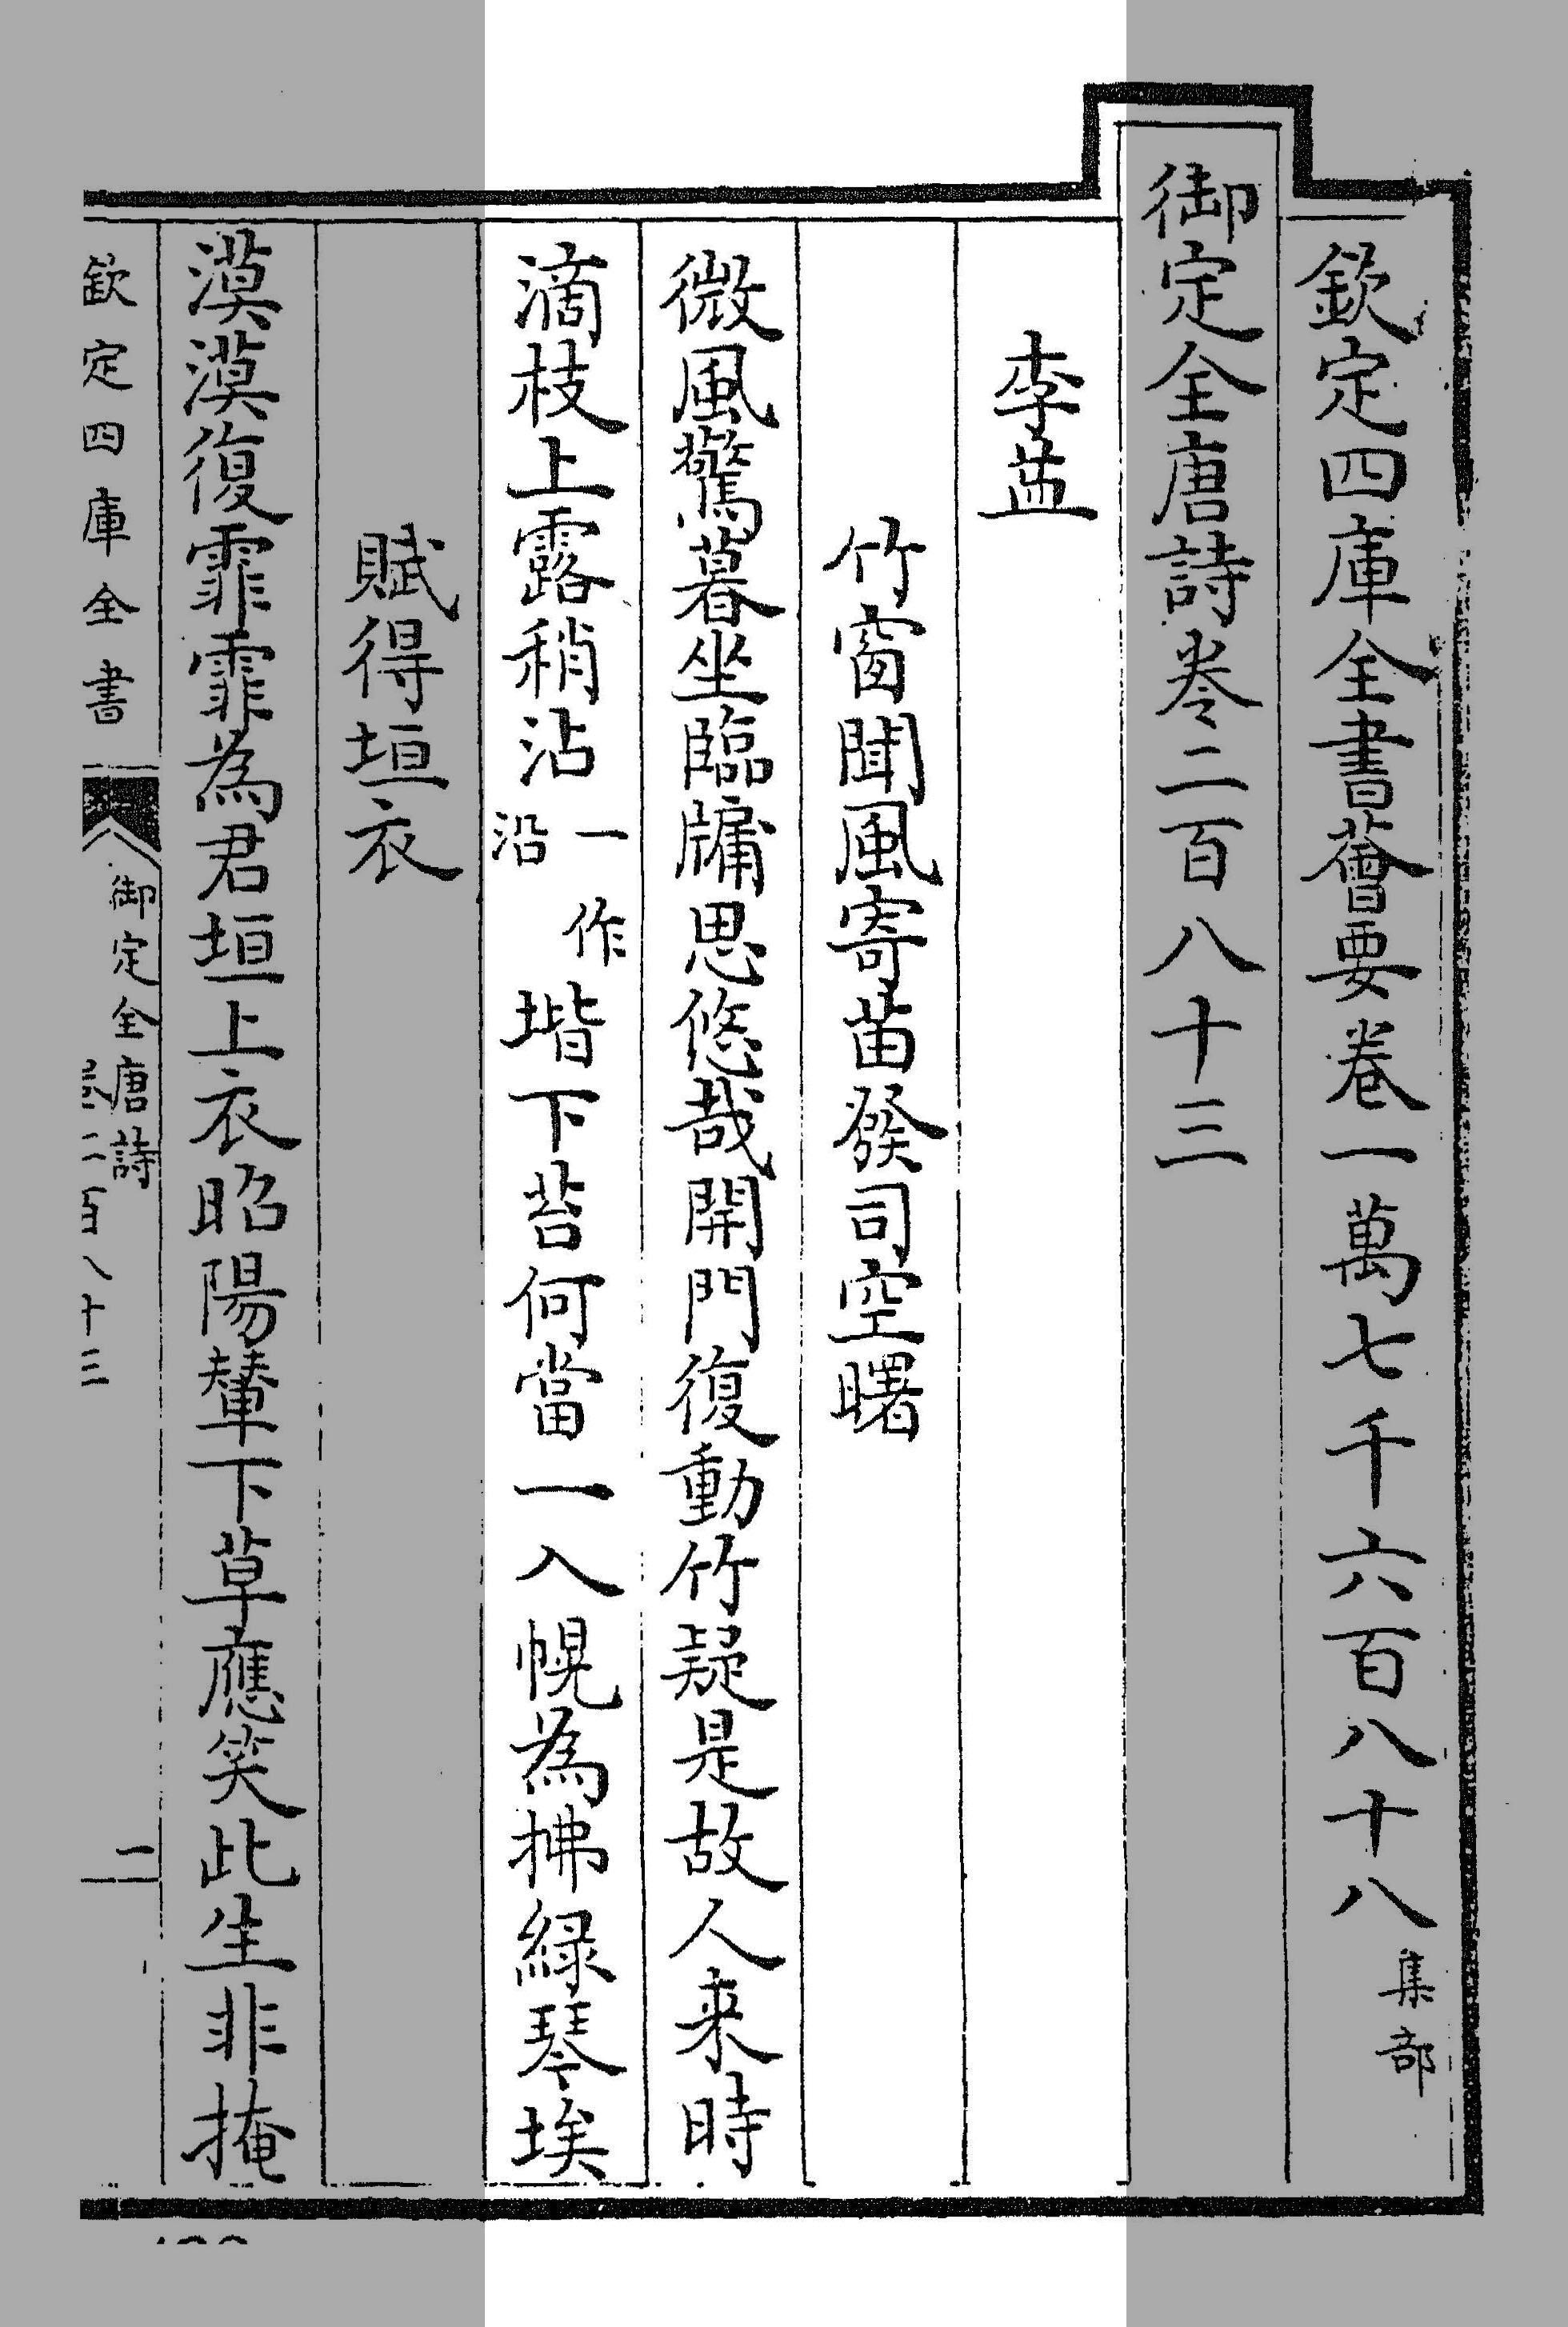 欽定四庫全書薈要卷一萬七千六百八十八集部
御定全唐詩卷二百八十三
李益
竹窗聞風寄苗發司空曙
微風驚暮坐臨牗思悠哉開門復動竹疑是故人来時
滴枝上露稍沾一作沿堦下苔何當一入幌為拂綠琴埃
賦得垣衣
漠漠復霏霏為君垣上衣昭陽輦下草應笑此生非掩
欽定四庫全書
御定全唐詩
卷二百八十三
二